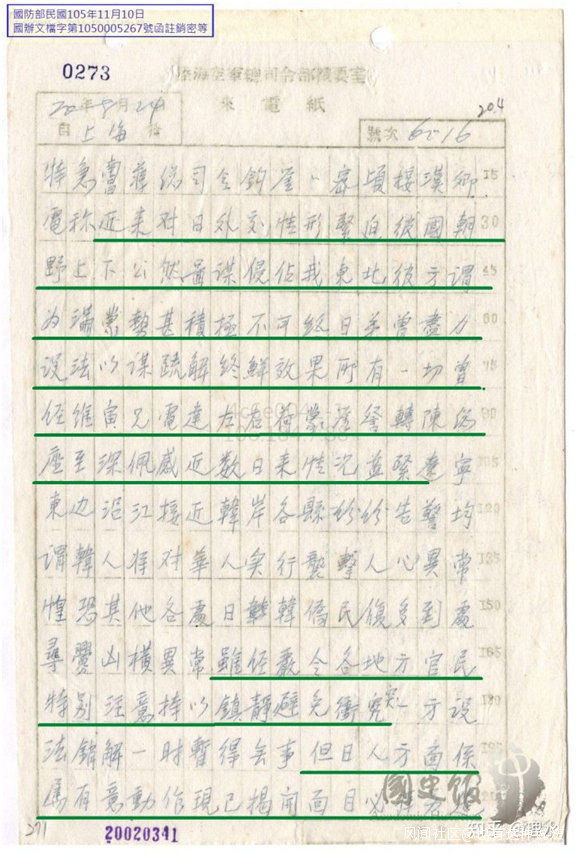 國防部民國105年11月10日
國辦文檔字第1050005267號函註銷密等
0273
陸海空軍總司令部機要室
來電紙
204
自上海
號次 6216
特急 蔣總司令鈞鑒 密頃接漢卿 15
電称近来对日外交情形緊迫彼國朝 30
野上下公然圖謀侵佔我東北彼方謂 45
为滿蒙勢甚積極不可終日弟曾盡力 60
设法以謀疏解終鮮效果所有一切曾 75
经維寅兄電達左右荷蒙 轉陳 90
座至深佩感近數日来情况益緊遼寧 105
東边沿江接近韓岸各縣紛紛告警均 120
谓韓人将对華人实行襲擊人心異常 135
惶恐其他各處日韓僑民復多到處 150
尋釁凶橫異常雖经嚴令各地方官民 165
特别注意持以鎮静避免衝突一方设 180
法銷解一时暫得無事但日人方面係 195
屬有意動作现已揭開面目必
國史館
20020341
知乎